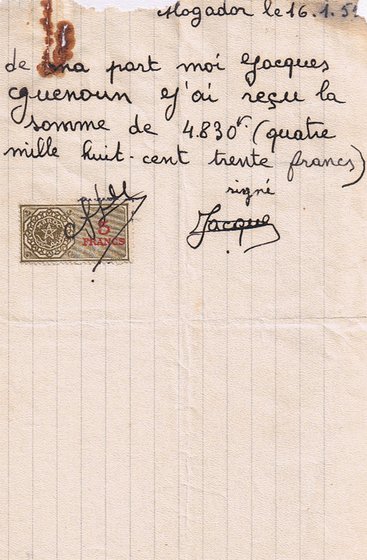 Mogador le 16.1.5
de ma part moi Jacques
Guenoun J'ai reçu la
somme de 4.830fr (quatre
mille huit-cent trente francs)
signé
Jacque
5
FRANCS